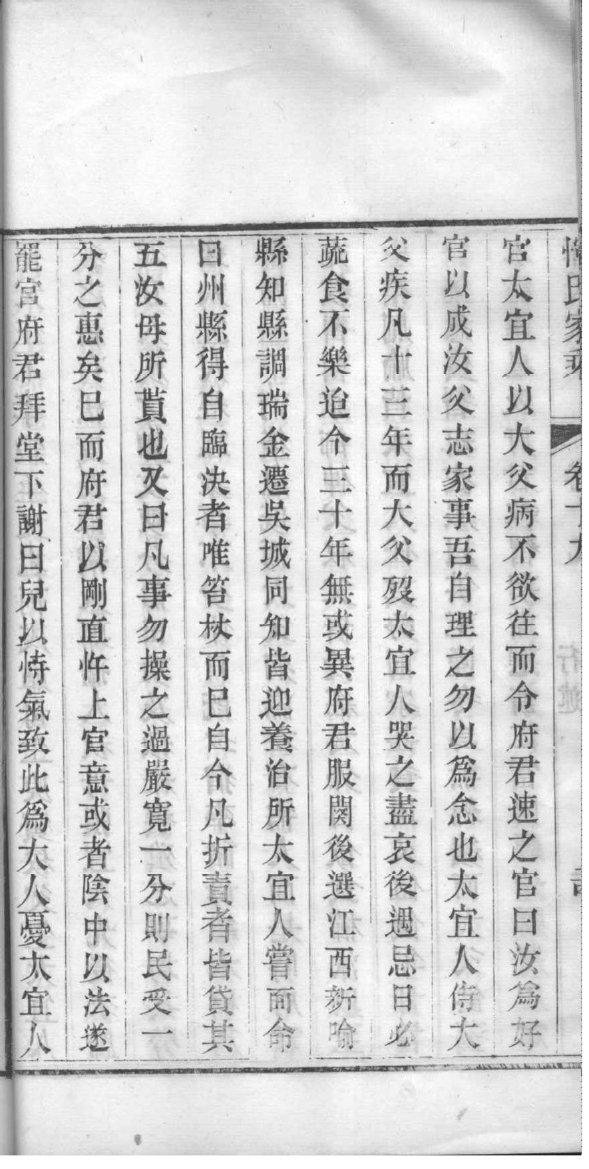 惲氏家乘 卷十九
官太宜人以大父病不欲往而令府君速之官曰汝為好
官以成汝父志家事吾自理之勿以為念也太宜人侍大
父疾凡十三年而大父歿太宜人哭之盡哀後遇忌日必
蔬食不樂迨今三十年無或異府君服闋後選江西新喻
縣知縣調瑞金遷吳城同知皆迎養治所太宜人嘗面命
曰州縣得自臨決者唯笞杖而已自今凡折責者皆貸其
五汝母所貰也又曰凡事勿操之過嚴寬一分則民受一
分之惠矣已而府君以剛直忤上官意或者陰中以法遂
罷官府君拜堂下謝曰兒以恃氣致此為大人憂太宜人